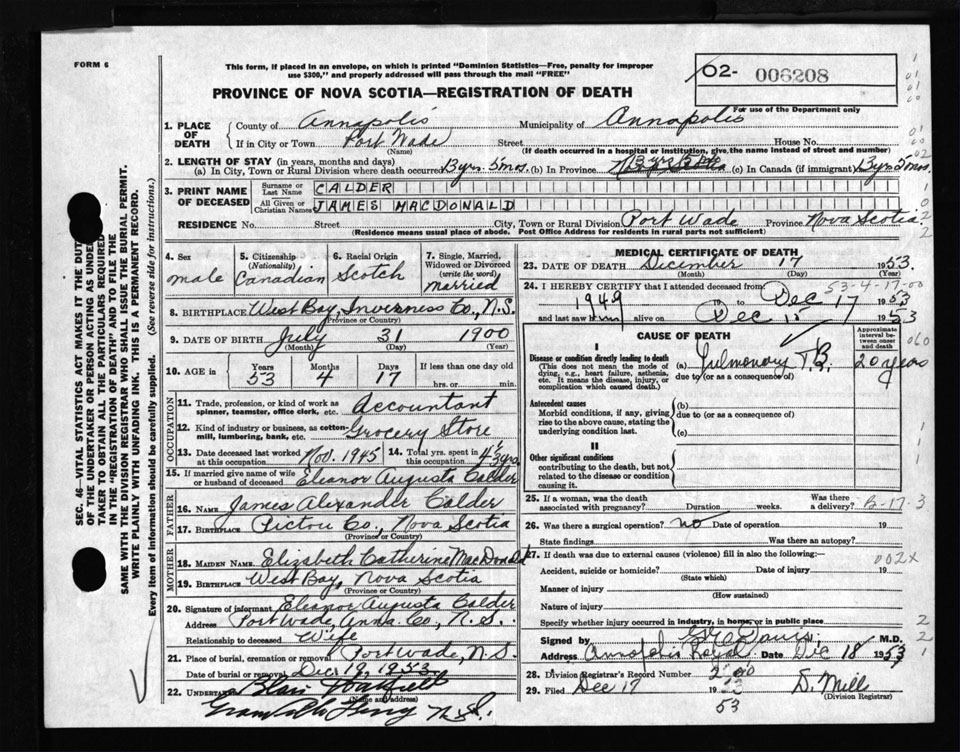 FORM 6
This form, if placed in an envelope, on which is printed "Dominion Statistics—Free, penalty for improper
use $300," and properly addressed will pass through the mail "FREE"
PROVINCE OF NOVA SCOTIA—REGISTRATION OF DEATH
02- 006208
For use of the Department only
SEC. 46—VITAL STATISTICS ACT MAKES IT THE DUTY
OF THE UNDERTAKER OR PERSON ACTING AS UNDER-
TAKER TO OBTAIN ALL THE PARTICULARS REQUIRED
IN THE "REGISTRATION OF DEATH" AND TO FILE THE
SAME WITH THE DIVISION REGISTRAR WHO SHALL ISSUE THE BURIAL PERMIT.
WRITE PLAINLY WITH UNFADING INK. THIS IS A PERMANENT RECORD.
Every item of information should be carefully supplied. (See reverse side for instructions.)
1. PLACE OF DEATH County of Annapolis Municipality of Annapolis
If in City or Town Port Wade Street House No.
(Name) (If death occurred in a hospital or institution, give the name instead of street and number)
2. LENGTH OF STAY (in years, months and days)
(a) In City, Town or Rural Division where death occurred 13 yrs. 5 mos. (b) In Province (c) In Canada (if immigrant) 13 yrs 5 mos.
3. PRINT NAME OF DECEASED Surname or Last Name CALDER
All Given or Christian Names JAMES MACDONALD
RESIDENCE No. Street City, Town or Rural Division Port Wade Province Nova Scotia
(Residence means usual place of abode. Post Office Address for residents in rural parts not sufficient)
4. Sex male
5. Citizenship (Nationality) Canadian
6. Racial Origin Scotch
7. Single, Married, Widowed or Divorced (write the word) married
8. BIRTHPLACE West Bay, Inverness Co., N.S.
(Province or Country)
9. DATE OF BIRTH July 31 1900
(Month) (Day) (Year)
10. AGE in Years 53 Months 4 Days 17 If less than one day old hrs. or min.
OCCUPATION
11. Trade, profession, or kind of work as spinner, teamster, office clerk, etc. Accountant
12. Kind of industry or business, as cotton-mill, lumbering, bank, etc. Grocery Store
13. Date deceased last worked at this occupation Nov. 1945 14. Total yrs. spent in this occupation 4 1/2 yrs.
15. If married give name of wife or husband of deceased Eleanor Augusta Calder
FATHER
16. NAME James Alexander Calder
17. BIRTHPLACE Pictou Co., Nova Scotia
(Province or Country)
MOTHER
18. MAIDEN NAME Elizabeth Catherine MacDonald
19. BIRTHPLACE West Bay, Nova Scotia
(Province or Country)
20. Signature of informant Eleanor Augusta Calder
Address Port Wade, Anna. Co., N.S.
Relationship to deceased Wife
21. Place of burial, cremation or removal Port Wade, N.S.
Date of burial or removal Dec 19, 1953
22. UNDERTAKER Blair
(Name and address)
Granville Ferry N.S.
MEDICAL CERTIFICATE OF DEATH
23. DATE OF DEATH December 17 1953
(Month) (Day)
53-4-17-00
24. I HEREBY CERTIFY that I attended deceased from
1949 to Dec 17 1953
and last saw alive on Dec 15 1953
CAUSE OF DEATH
Approximate interval between onset and death
I
Disease or condition directly leading to death (a) Pulmonary T.B. 20 years
(This does not mean the mode of dying, e.g., heart failure, asthenia, etc. It means the disease, injury, or complication which caused death.)
due to (or as a consequence of)
Antecedent causes
Morbid conditions, if any, giving rise to the above cause, stating the underlying condition last.
(b)
due to (or as a consequence of)
(c)
II
Other significant conditions
contributing to the death, but not related to the disease or condition causing it.
25. If a woman, was the death associated with pregnancy? Duration weeks. Was there a delivery?
B-17-3
26. Was there a surgical operation? no Date of operation 19
State findings Was there an autopsy?
27. If death was due to external causes (violence) fill in also the following:
002X
Accident, suicide or homicide? Date of injury 19
(State which)
Manner of injury
(How sustained)
Nature of injury
Specify whether injury occurred in industry, in home, or in public place
Signed by Davis M.D.
Address Annapolis Royal Date Dec 18 1953
28. Division Registrar's Record Number
29. Filed Dec 17 19 53 D. Mill
(Division Registrar)